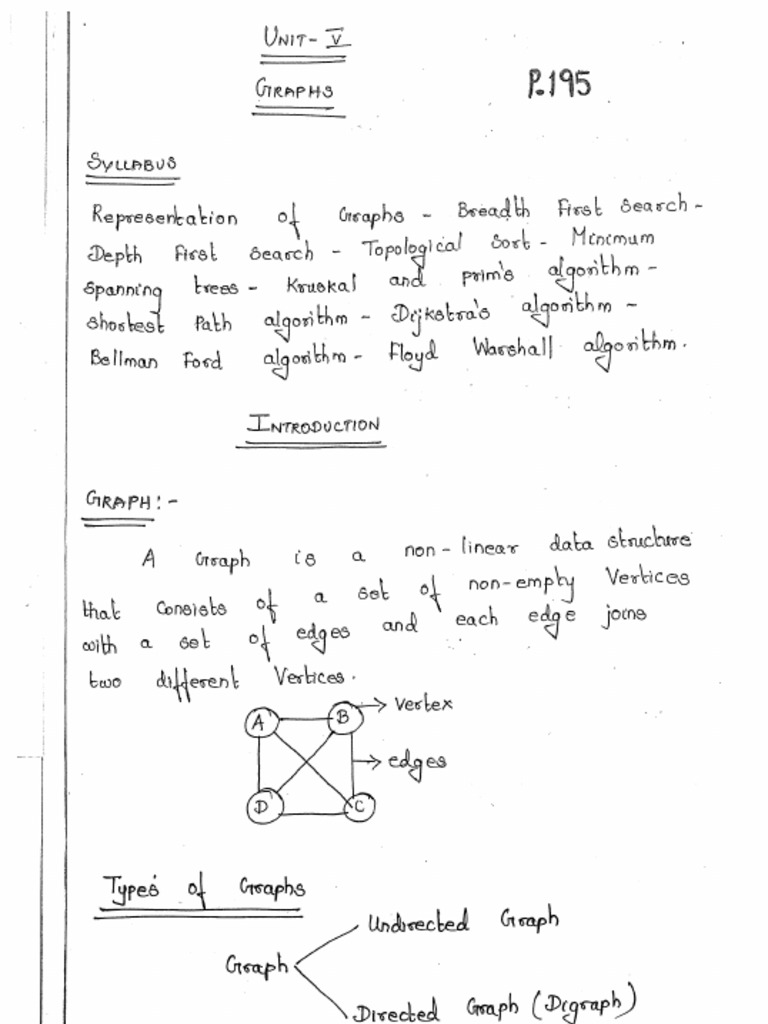 UNIT - V
GRAPHS
P.195
SYLLABUS
Representation of Graphs - Breadth First Search -
Depth First Search - Topological Sort - Minimum
Spanning trees - Kruskal and prim's algorithm -
Shortest Path algorithm - Dijkstra's algorithm -
Bellman Ford algorithm - Floyd Warshall algorithm.
INTRODUCTION
GRAPH :-
A Graph is a non-linear data structure
that consists of a set of non-empty Vertices
with a set of edges and each edge joins
two different Vertices.
A B → vertex
→ edges
D C
Types of Graphs
Undirected Graph
Graph
Directed Graph (Digraph)